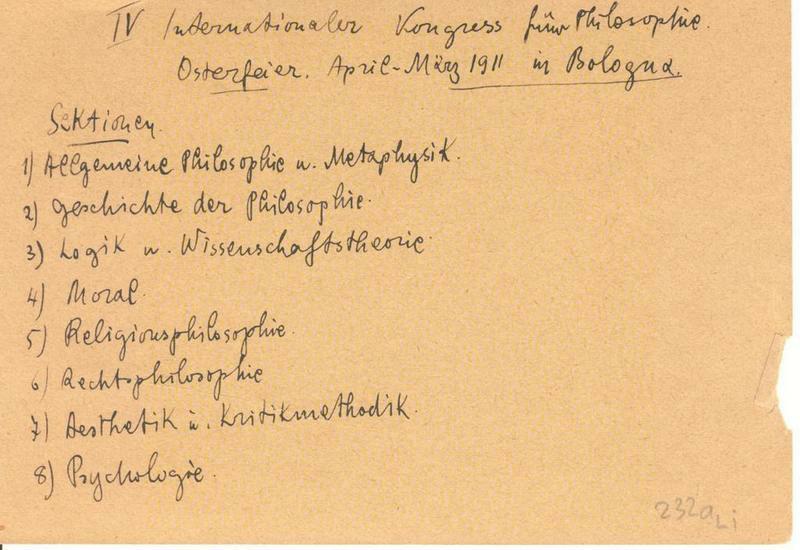 IV Internationaler Kongress für Philosophie.
Osterfeier. April-März 1911 in Bologna.
Sektionen.
1) Allgemeine Philosophie u. Metaphysik.
2) Geschichte der Philosophie.
3) Logik u. Wissenschaftstheorie.
4) Moral.
5) Religionsphilosophie.
6) Rechtsphilosophie
7) Aesthetik u. Kritikmethodik.
8) Psychologie.
232a